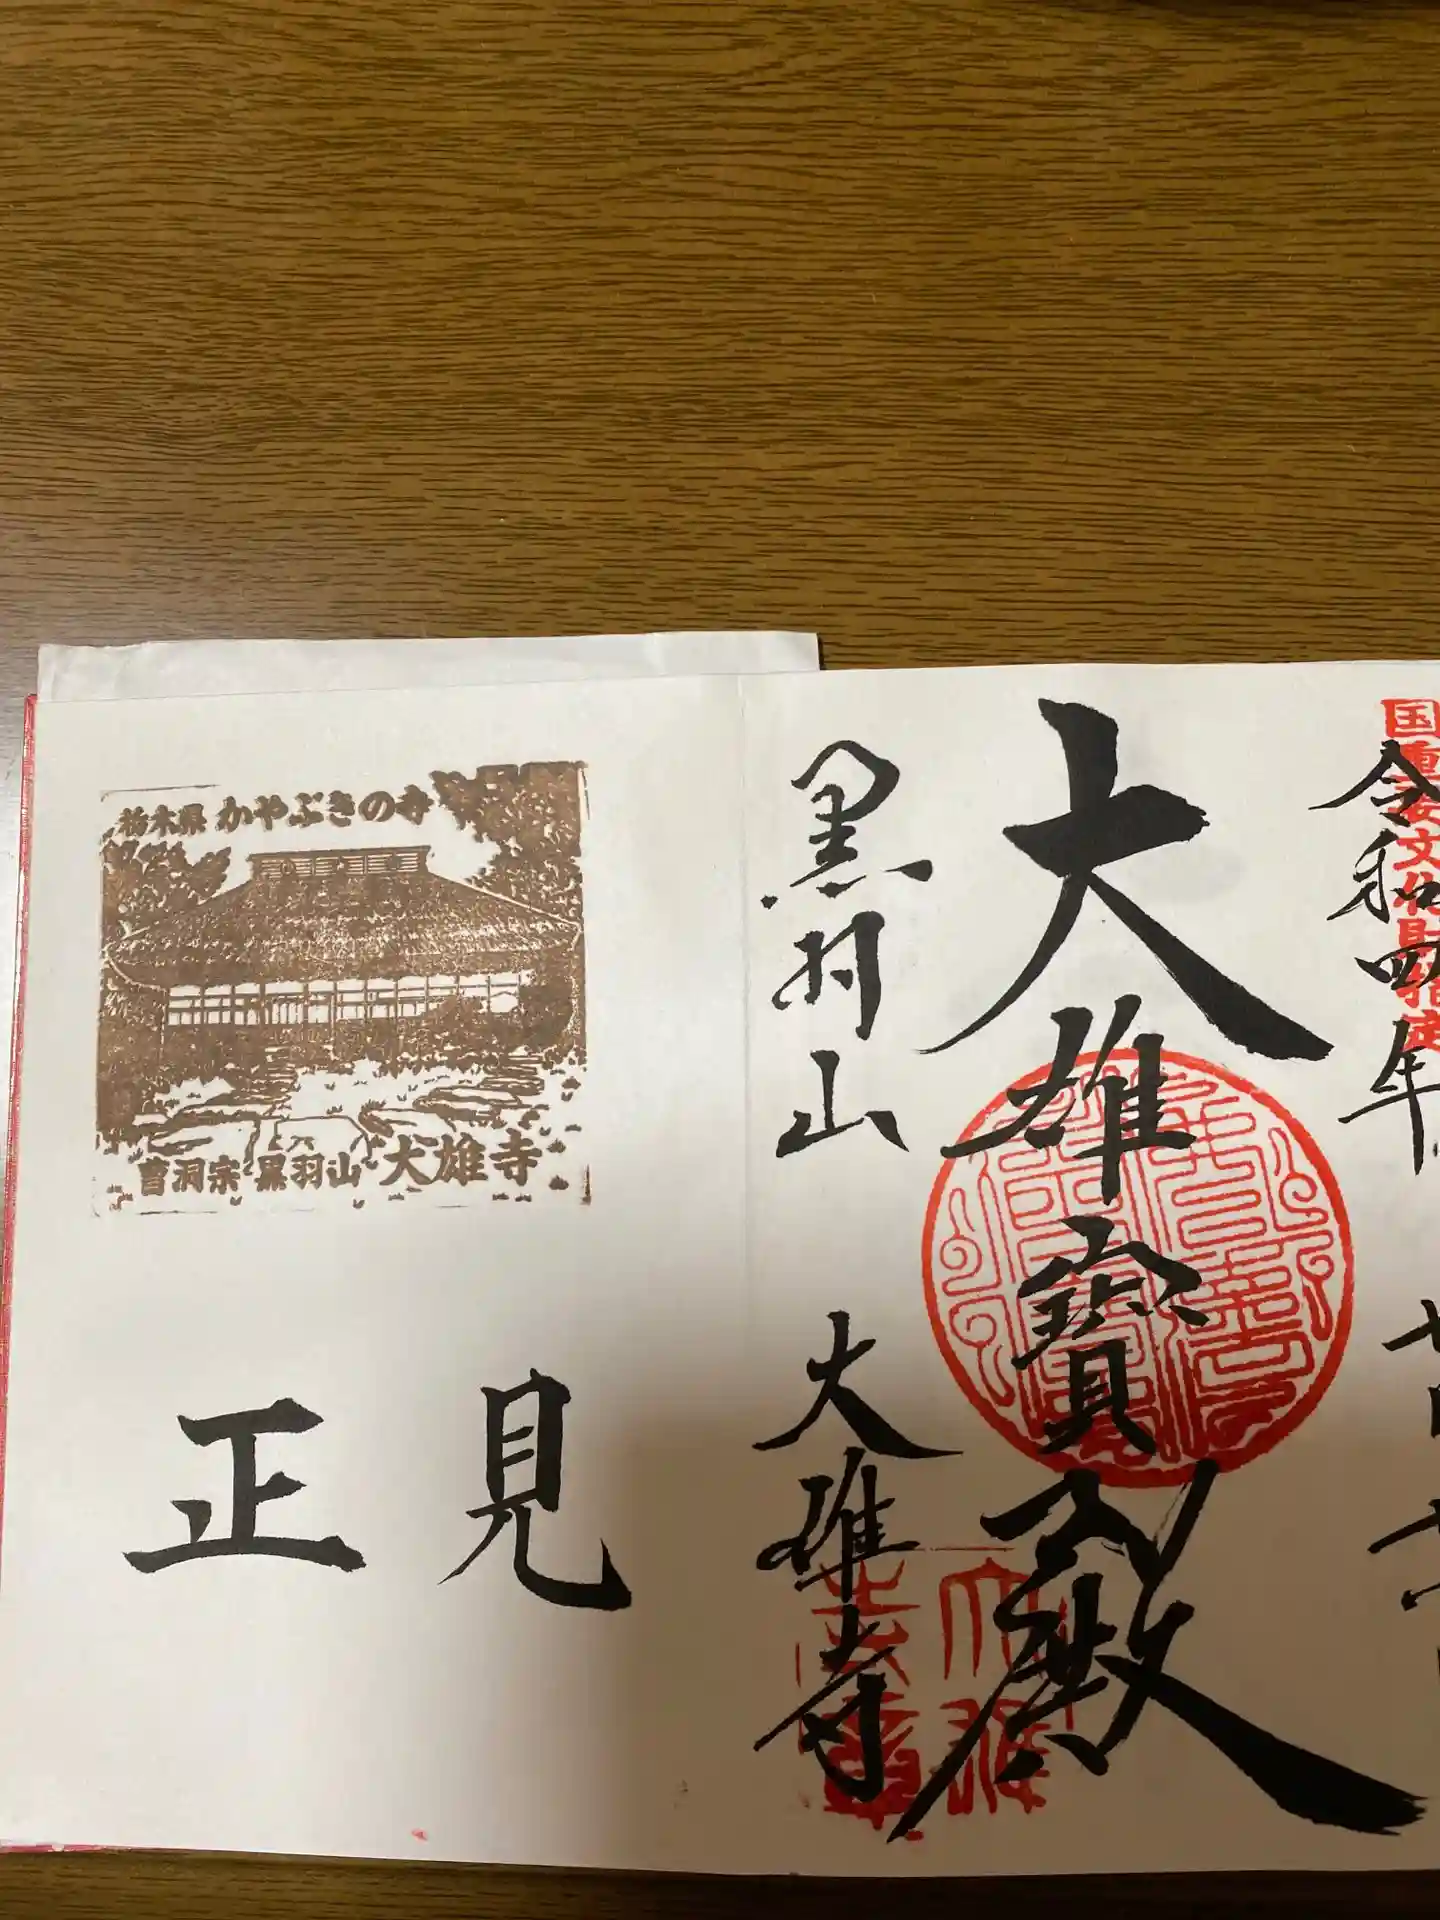 国重要文化財指定
令和四年
大雄寳殿
黒羽山
大雄寺
栃木県 かやぶきの寺
曹洞宗 黒羽山 大雄寺
見
正